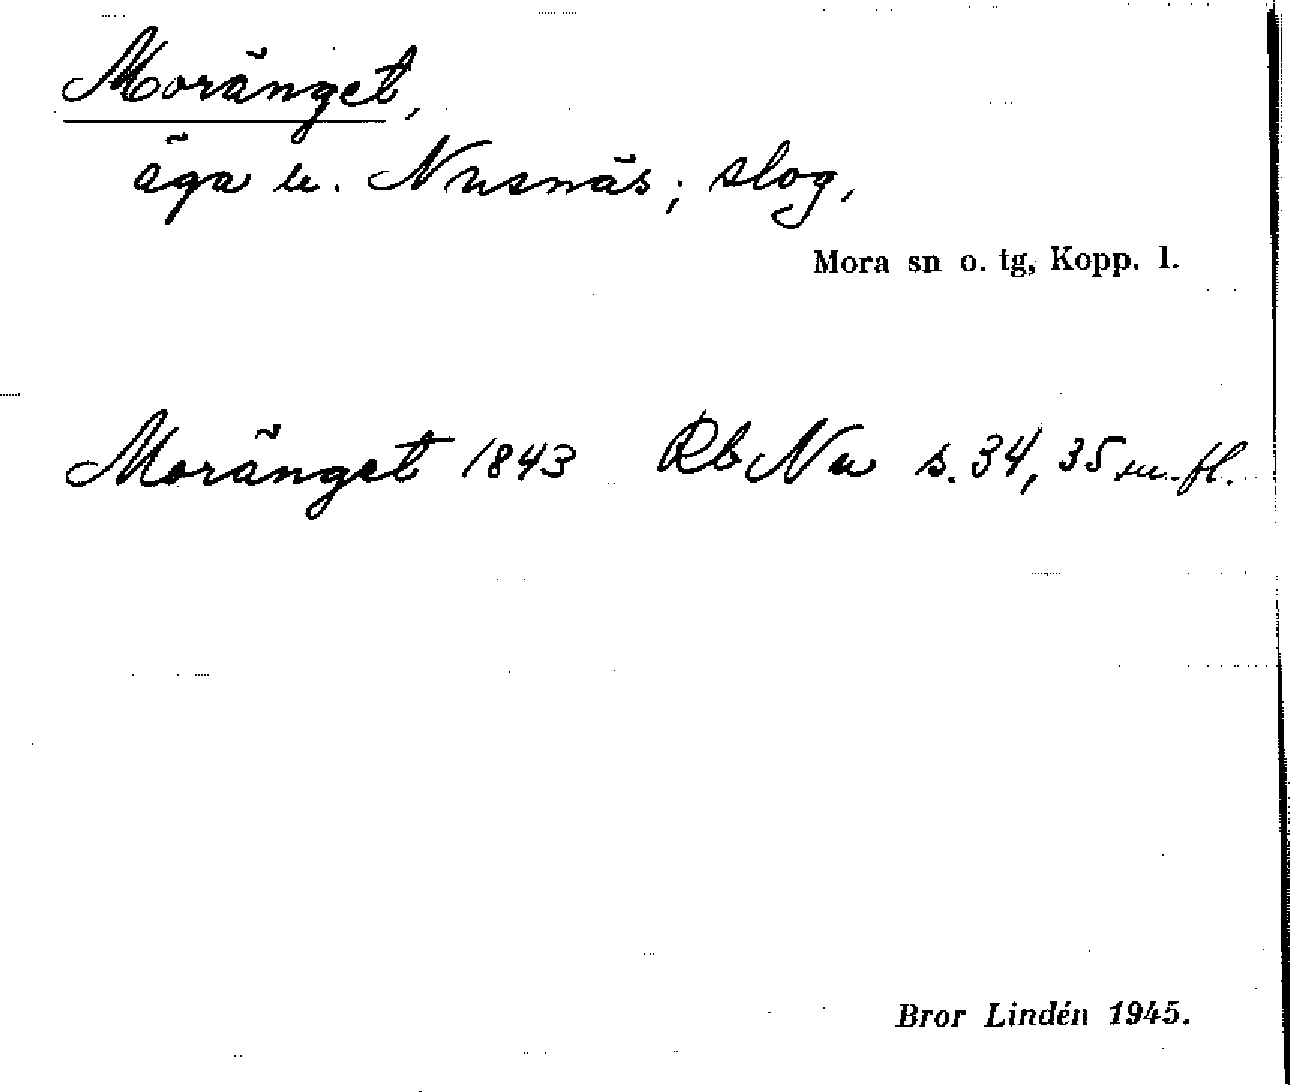 Moränget,
äga u. Nusnäs; slog,
Mora sn o. tg, Kopp. l.
Moränget 1843 Rb Nu s. 34, 35 m. fl.
Bror Lindén 1945.